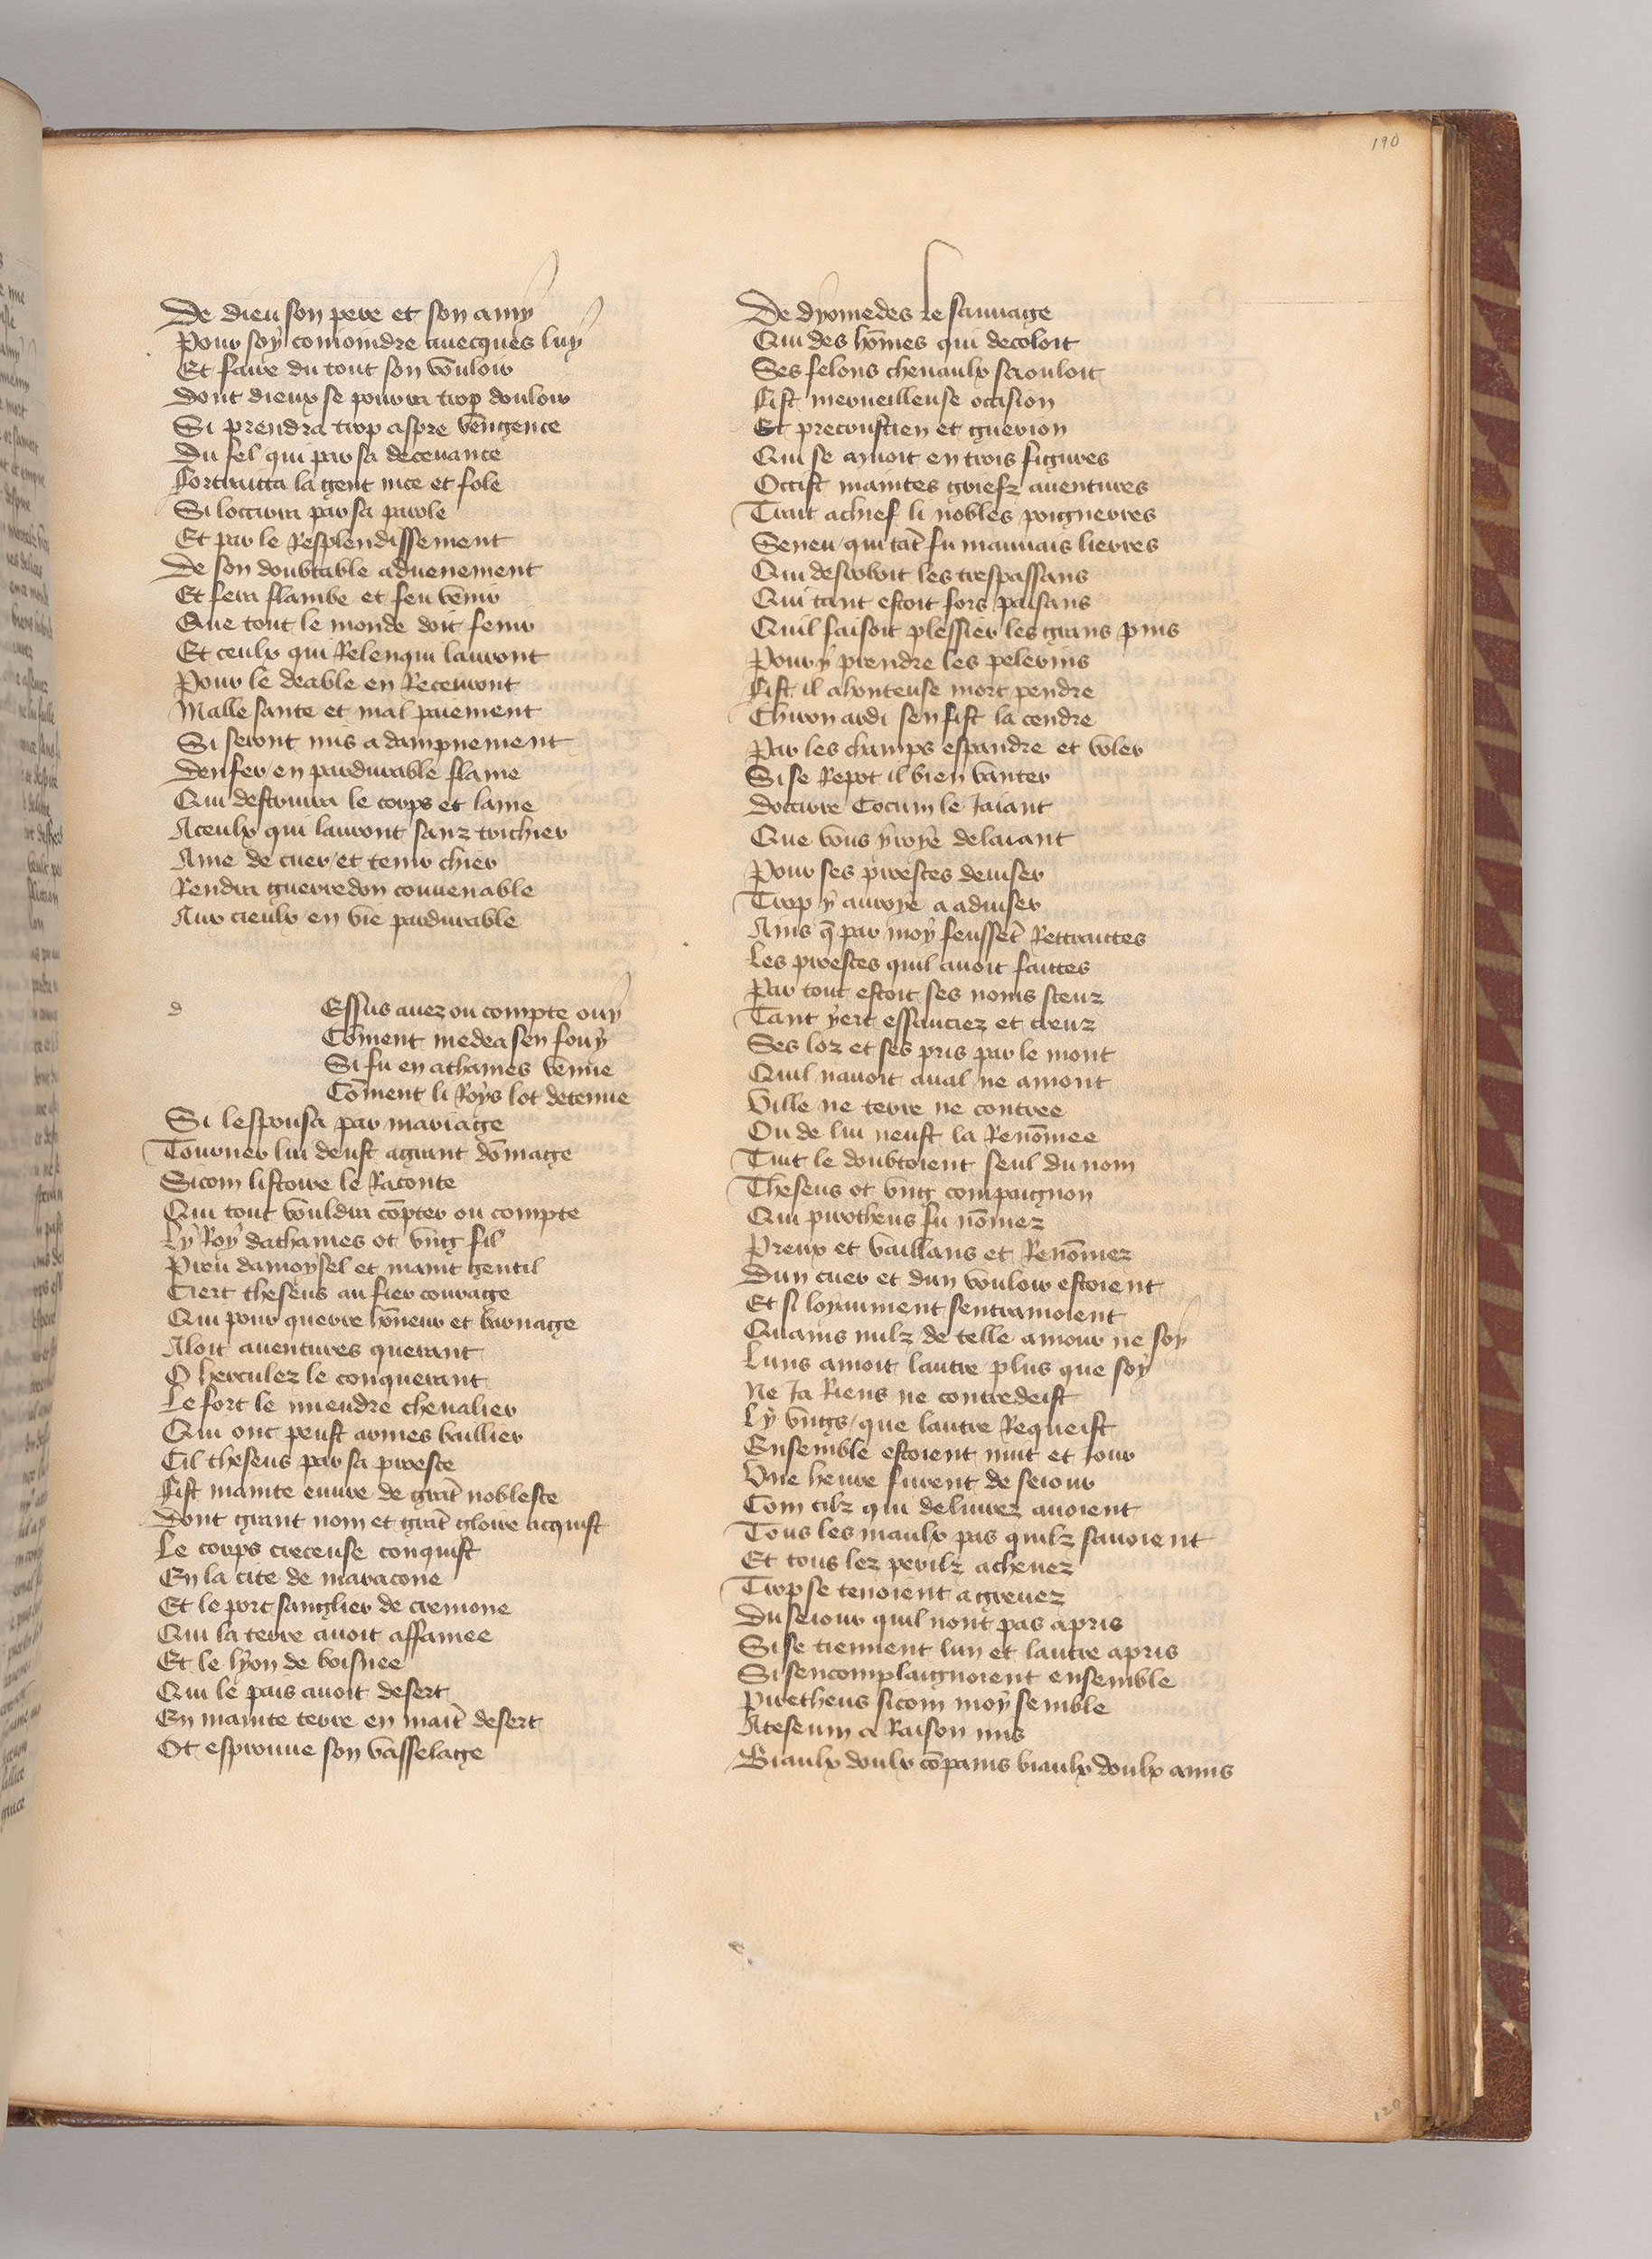 190
De dieu son pere et son amy
Pour soy comoindre auecques luy
Et faire du tout son vouloir
Dont dieux se pourra trop douloir
Si prendra trop aspre vengence
Du fel qui par sa deceuance
Fortraitta la gent nice et fole
Si loccirra par sa parole
Et par le Resplendissement
De son doubtable aduenement
Et fera flambe et feu venir
Que tout le monde doit fenir
Et ceulx qui Relenqui lauront
Pour le deable en Receuront
Malle sante et mal paiement
Si seront mis a dampnement
Denfer/en pardurable flame
Qui destruira le corps et lame
Aceulx qui lauront sanz trichier
Ame de cuer/et tenir chier
Rendra guerredon conuenable
Aux cieulx en vie pardurable
d Essus auez ou compte ouy
Cōment medea sen fouy
Si fu en athaines venue
Cōment li Roys lot detenue
Si lespousa par mariage
Tourner lui deust agrant dōmage
Sicom listoire le Raconte
Qui tout vouldra cōpter ou compte
Ly Roy dathaines ot vng fil
Preu damoysel et maint gentil
Ciert theseus au fier courage
Qui pour querre hōneur et barnage
Aloit auentures querant
O herculez le conquerant
Le fort le miendre cheualier
Qui onc peust armes baillier
Cil theseus par sa proesce
Fist mainte euure de grāt noblesce
Dont grant nom et grāt gloire acquist
Le corps creceuse conquist
En la cite de maracone
Et le porc sanglier de cremone
Qui la terre auoit affamee
Et le lyon de boisnee
Qui le pais auoit desert
En mainte terre en maīt desert
Ot esprouue son vasselage
De dyomedes le sauuage
Qui des hōmes qui decoloit
Ses felons cheuaulx saouloit
Fist merueilleuse occision
Et precrustien et guerion
Qui se muoit en trois figures
Occist maintes griefz auentures
Trait achief li nobles poignerres
Seneu/qui tāt fu mauuais lierres
Qui desroboit les trespassans
Qui tant estoit fors paisans
Quil faisoit plessier les grans pins
Pour y prendre les pelerins
Fist il ahonteuse mort pendre
Chiron ardi sen fist la cendre
Par les champs espandre et voler
Si se Repot il bien vanter
Doccirre Cocum le Jaiant
Que vous yroye delaiant
Pour ses proesces deuiser
Trop y auroye a aduiser
Ains q̄ par moy feussēt Rettraittes
Les proesces quil auoit faittes
Par tout estoit ses noms sceuz
Tant yert essauciez et creuz
Ses loz et ses pris par le mont
Quil nauoit aual ne amont
Ville ne terre ne contree
Ou de lui neust la Renōmee
Tuit le doubtoient seul du nom
Theseus ot vng compaignon
Qui protheus fu nōmez
Preux et vaillans et Renōmez
Dun cuer et dun vouloir estoient
Et si loyaument sentramoient
Quains nulz de telle amour ne soy
Luns amoit lautre plus que soy
Ne Ja Riens ne contredeist
Ly vngs/que lautre Requeist
Ensemble estoient nuit et Jour
Vne heure furent de seiour
Com cilz qui deliurez auoient
Tous les maulx pas quilz sauoient
Et tous lez perilz acheuez
Trop se tenoient agreuez
Du seiour quil nont pas apris
Si se tiennent lun et lautre apris
Si sencomplaignoient ensemble
Piretheus sicom moy semble
Ateseum a Raison mis
Biaulx doulx cōpains biaulx doulx amis
120